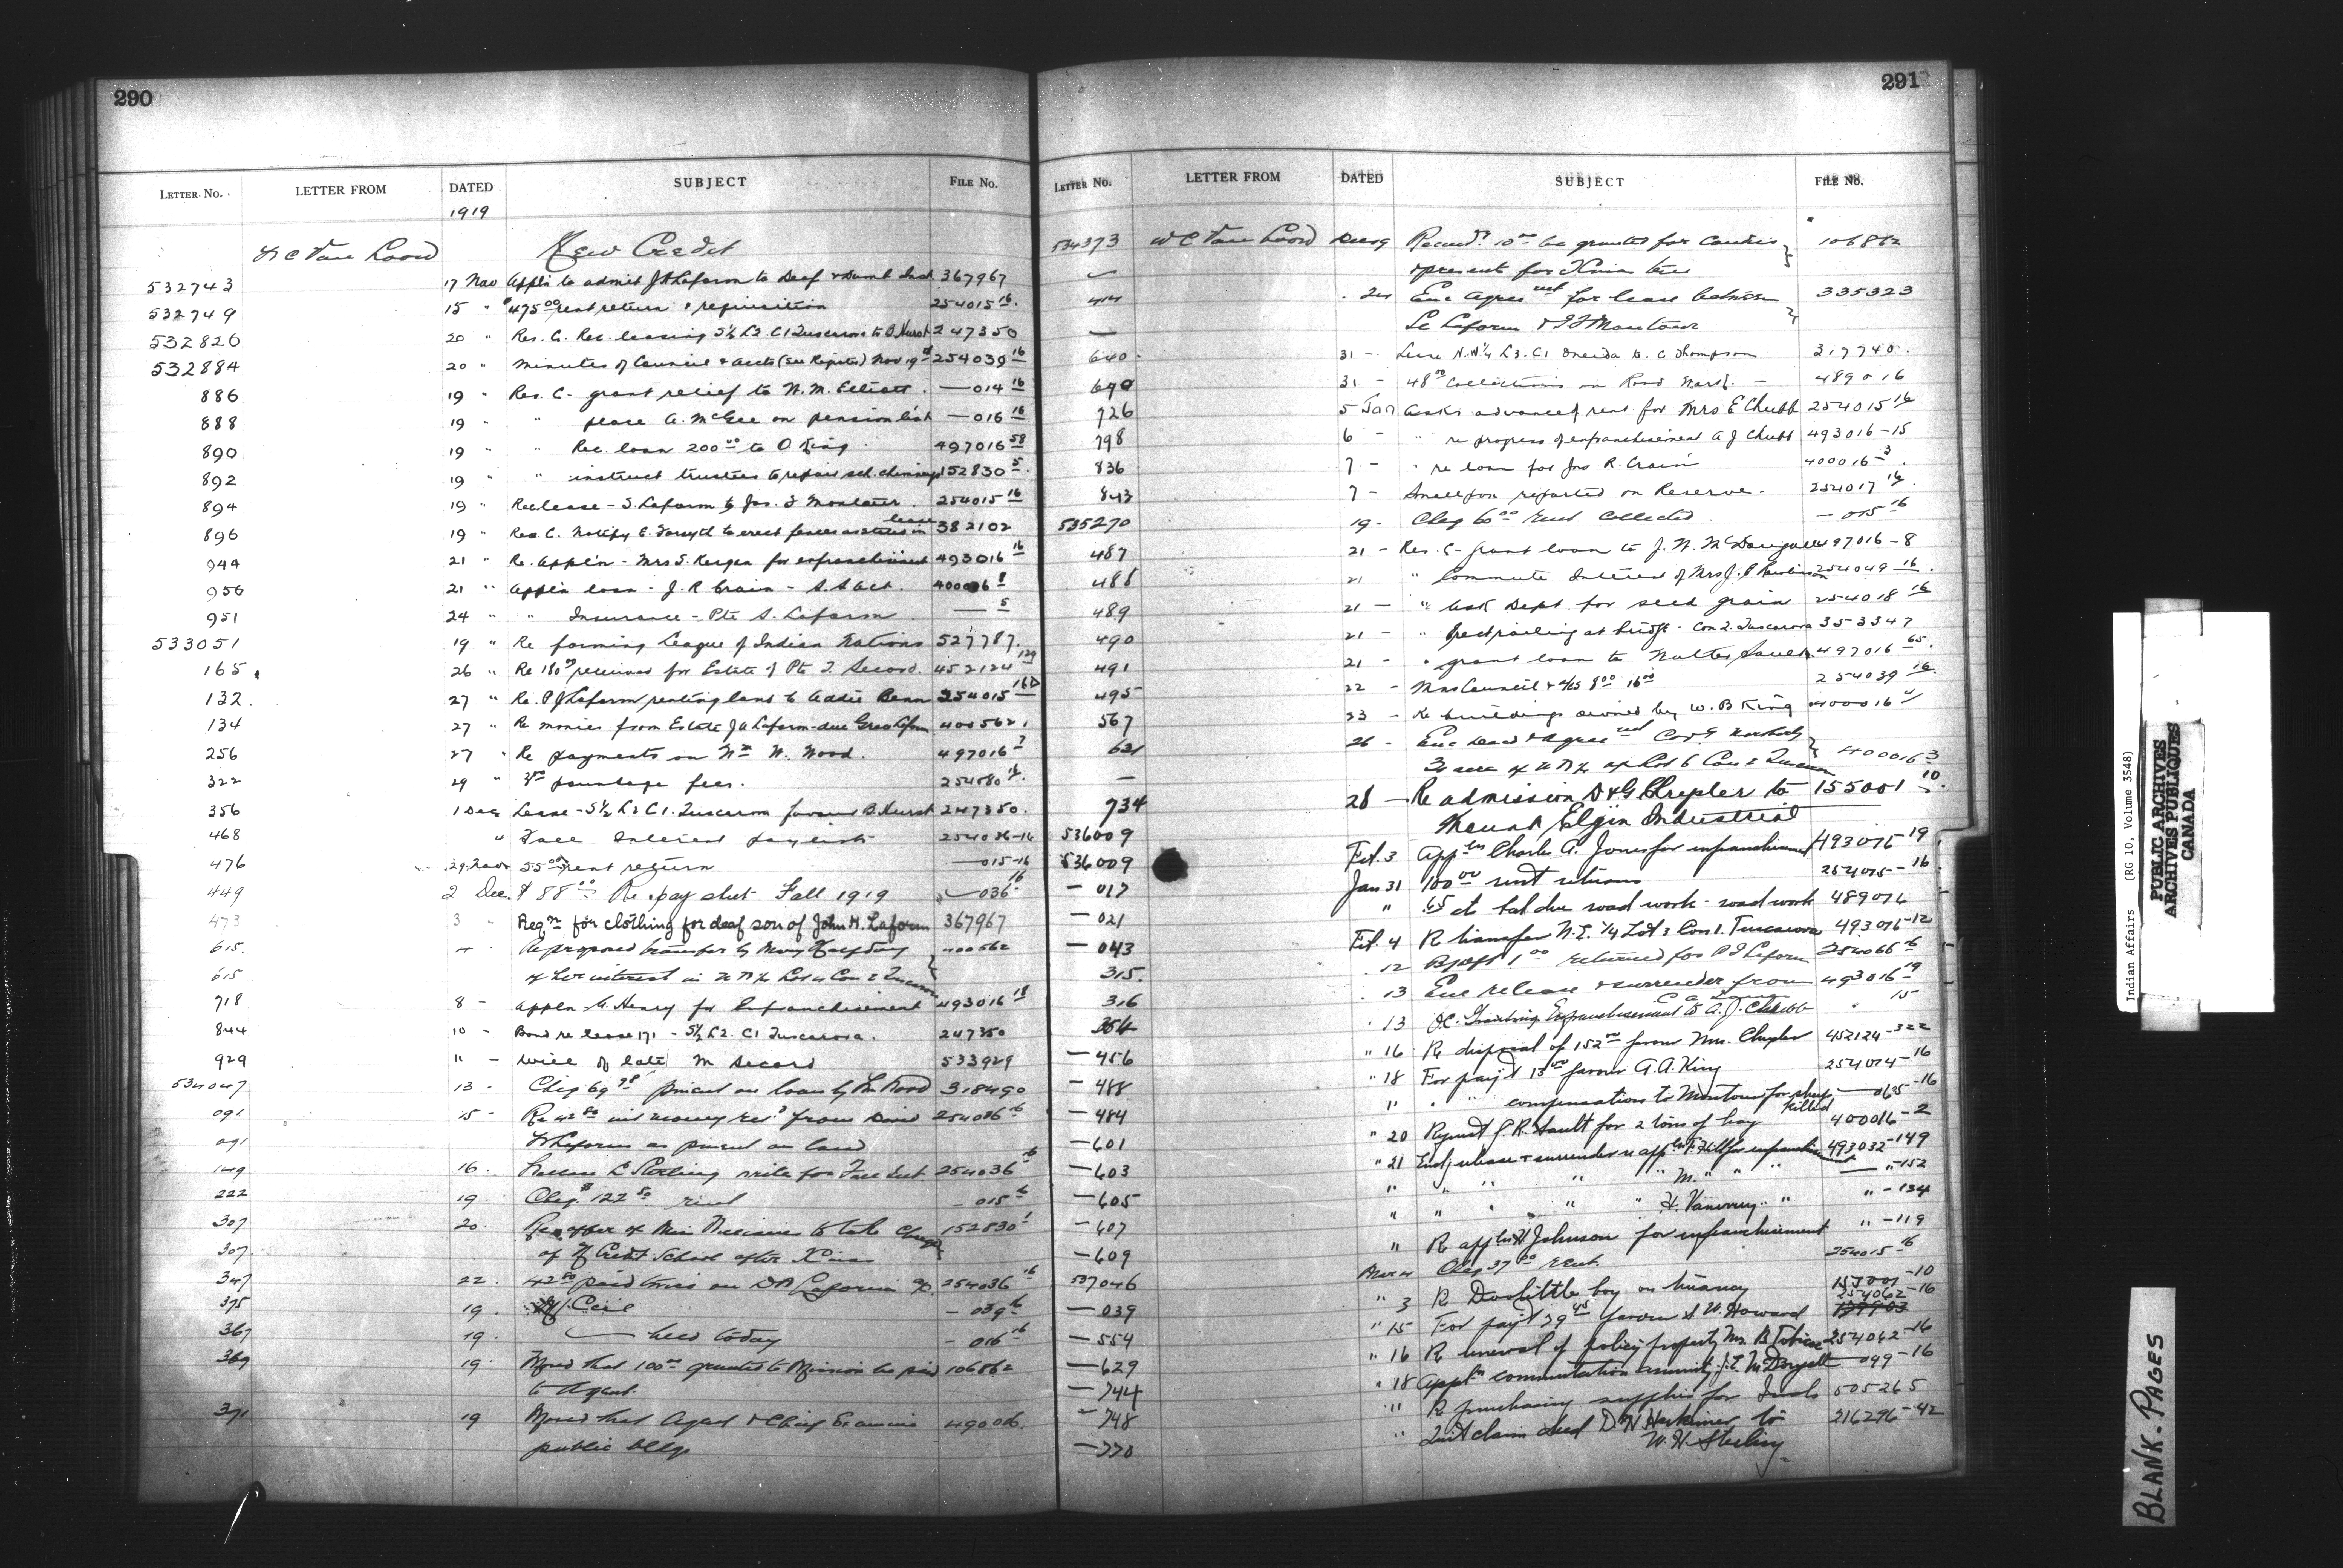 290
LETTER NO. LETTER FROM DATED SUBJECT FILE NO.
1919
W C Van Loon New Credit
532743 17 Nov Appl'n to admit J H Laform to Deaf & Dumb Inst. 367967
532749 15 " $475.00 rent return & requisition 254015 16
532820 20 " Res. C. Rec. leasing S½ L2. C1 Tuscarora to B. Hurst 247350
532884 20 " Minutes of Council & accts (see Register) Nov 19th 254039 16
886 19 " Res. C. grant relief to N. M. Elliott. — 014 16
888 19 " " place A. McGee on pension list — 016 16
890 19 " " Rec. loan 200.00 to O King 497016 58
892 19 " " instruct trustees to repair sch. chimneys 152830 5
894 19 " Release - S. Laform to Jas. F Montour. 254015 16
896 19 " Res. C. Notify E. Forsyth to erect fences as stated in lease 382102
944 21 " Re. Appl'n - Mrs S. for enfranchisement 493016 16
950 21 " Appl'n loan - J. R Crain - S. S Act. 400016 8
951 24 " " Insurance - Pte S. Laform — 5
533051 19 " Re forming League of Indian Nations 527787.
165. 26 " Re 180.00 received for Estate of Pte J. Secord. 452124 129
132. 27 " Re. P J Laform renting land to Addie Bann 254015 16
134 27 " Re monies from Estate J A Laform - due Laform 400562.
256 27 " Re payments on Wm W. Wood. 497016 7
322 29 " poundage fees. 254080 16
356 1 Dec Lease - S½ L2 C1. Tuscarora favour B. Hurst 247350.
468 " Fall Interest paylist 254036-16
476 29 Nov 55.00 rent return — 015-16
449 2 Dec. $88.00 Re pay sheet Fall 1919 — 036 16
473 3 " Reqn for clothing for deaf son of John H. Laform 367967
615. 4 Re proposed transfer by Mary Halfday 400562
615 of her interest in N ½ Lot Con 2 Tuscarora
718 8 - Appln G. Henry for Enfranchisement 493016 18
844 10 - Bond re lease 171 - S½ L2. C1 Tuscarora. 247350
929 11 - Will of late M Secord 533929
534047 13 - Cheq 69 on loan by Wm Wood 318490
091 15 - Re 42.50 int money rec'd from David 254036 16
091 Laform as on land
149 16. Sterling write for Fall Int. 254036 16
222 19. Cheq. $122.50 rent — 015 16
307 20. Re offer of Miss to take charge 152830 1
307 of N Credit School after Xmas
347 22. 42.50 paid on D A Laform 254036 16
375 19. — 039 16
367 19. — held today — 016 16
369 19. Moved that 100.00 granted to Mission be paid 106862
to Agent.
371 19 Moved that Agent & Chief Examine 490016.
public bldgs
291
LETTER NO. LETTER FROM DATED SUBJECT FILE NO.
534373 W C Van Loon Dec 19 Recmd. 10.00 be granted for Candies 106862
& presents for Xmas tree
414 . 24 Enc Agreement for lease between 335323
— Laform & J F Montour
640. 31 - Lease N.W¼ L3. C1 Oneida to C Thompson 317740.
690 31 - 48.00 collections on Road — 489016
726 5 Jan Asks advance of rent for Mrs E Chubb 254015 16
798 6 - " re progress of enfranchisement A J Chubb 493016-15
836 7 - " re loan for Jno R. Crain 400016 3
843 7 - Smallpox reported on Reserve. 254017 16
535270 19 - Cheq 60.00 rent collected — 015 16
487 21 - Res. C - grant loan to J. N. McDougall 497016-8
488 21 " Commute Interest of Mrs J. 254049 16
489 21 - " ask Dept. for seed grain 254018 16
490 21 - " railing at bridge - Con 2. Tuscarora 353347
491 21 - " grant loan to Walter Sault 497016 65
495 22 - Min Council & a/cs 8.00 16.00 254039 16
567 23 - Re buildings owned by W. B King 400016
621 26 - Enc Deed & Agreement
— acres of N ½ of Lot 6 Con 2 Tuscarora 400016 3
734 28 - Re admission D & G Chrysler to 155001 10
536009 Mount Elgin Industrial
536009 Feb. 3 Appln Charles A. Jones for enfranchisement 493016-19
— 017 Jan 31 100.00 rent return 254015-16
— 021 " 65 cts bal due road work - road work 489016
— 043 Feb. 4 Re transfer N.E. ¼ Lot 3 Con 1. Tuscarora 493016-12
315. . 12 1.00 returned for P J Laform 254066 16
316 . 13 Enc release & surrender from 493016 19
354 . 13 O.C. Granting Enfranchisement to A. J. Chubb " 15
— 456 " 16 Re disposal of 152.00 favour Mrs. Chrysler 452124-322
— 488 " 18 For pay't 15.00 favour A. A. King 254014-16
— 484 " " " compensation to Montour for sheep killed — 065-16
— 601 " 20 Repmt J. R. Sault for 2 tons of hay 400016-2
— 603 " 21 Encl, release & surrender re appln F. Hill for enfranchisement 493032-149
— 605 " " " " " M. " " " — " -152
— 607 " " " " " H. Vanevery " " " -134
— 609 " Re appln H Johnson for enfranchisement " -119
537046 Mar 4 Cheq 37.00 rent. 254015 16
— 039 " 3 Re Doolittle boy on truancy 155001-10
— 554 " 15 For pay't 39.45 favour S. W. Howard 254062-16
— 629 " 16 Re renewal of policy property Mrs. B Tobicoe 254062-16
— 744 " 18 Appln commutation annuity J. E McDougall 049-16
— 748 " " Re purchasing supplies for Inds 505265
— 770 " Quit claim deed D. N Herkimer to 216296-42
W. H. Sterling
Indian Affairs (RG 10, Volume 3548)
PUBLIC ARCHIVES
ARCHIVES PUBLIQUES
CANADA
BLANK. PAGES